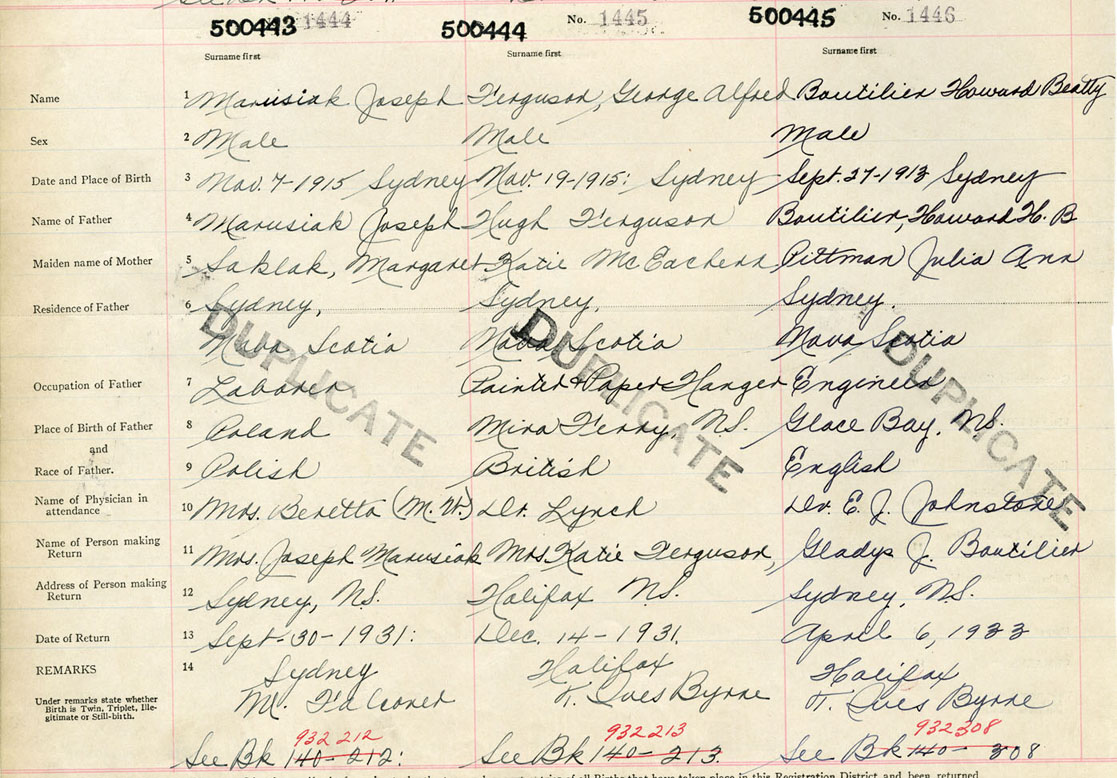 500443 1444 500444 No. 1445 500445 No. 1446
Surname first Surname first Surname first
Name 1 Marusiak Joseph Ferguson, George Alfred Boutilier Howard Beatty
Sex 2 Male Male Male
Date and Place of Birth 3 Nov. 7-1915 Sydney Nov. 19-1915: Sydney Sept. 27-1913 Sydney
Name of Father 4 Marusiak Joseph Hugh Ferguson Boutilier, Howard H. B
Maiden name of Mother 5 Saklak, Margaret Katie McEachern Pittman Julia Ann
Residence of Father 6 Sydney, Sydney, Sydney.
Nova Scotia Nova Scotia Nova Scotia
DUPLICATE DUPLICATE DUPLICATE
Occupation of Father 7 Laborer Painter & Paper Hanger Engineer
Place of Birth of Father 8 Poland Mira Ferry, N.S. Glace Bay, N.S.
and
Race of Father. 9 Polish British English
Name of Physician in
attendance 10 Mrs. Beretta (M.W.) Dr. Lynch Dr. E. J. Johnstone
Name of Person making
Return 11 Mrs. Joseph Marusiak Mrs Katie Ferguson, Gladys J. Boutilier
Address of Person making
Return 12 Sydney, N.S. Halifax N.S. Sydney, N.S.
Date of Return 13 Sept-30-1931: Dec. 14-1931. April 6, 1933
REMARKS 14 Sydney Halifax Halifax
Under remarks state whether
Birth is Twin, Triplet, Ille-
gitimate or Still-birth.
M. Falconer Byrne Byrne
932 212 932 213 932 308
See Bk 140-212: See Bk 140-213. See Bk 140-308